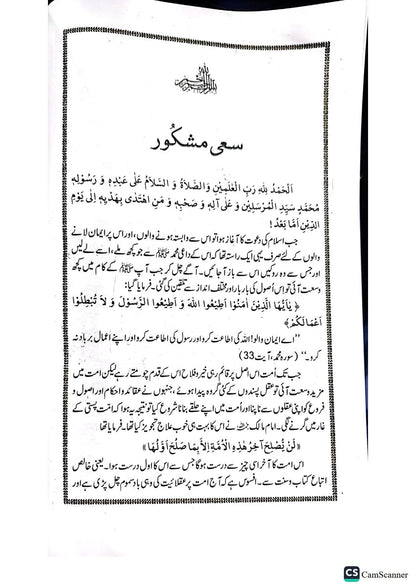 بسم الله الرحمن الرحيم
سعی مشکور
اَلْحَمْدُ لِلّٰهِ رَبِّ الْعٰلَمِيْنَ وَالصَّلَاةُ وَ السَّلَامُ عَلٰى عَبْدِهٖ وَ رَسُوْلِهٖ
مُحَمَّدٍ سَيِّدِ الْمُرْسَلِيْنَ وَ عَلٰى آلِهٖ وَ صَحْبِهٖ وَ مَنِ اهْتَدٰى بِهَدْيِهٖ اِلٰى يَوْمِ
الدِّيْنِ اَمَّا بَعْدُ!
جب اسلام کی دعوت کا آغاز ہوا تو اس سے وابستہ ہونے والوں، اور اس پر ایمان لانے
والوں کے لئے صرف یہی ایک راستہ تھا کہ اس کے داعی محمد ﷺ سے جو کچھ ملے، اسے لے لیں
اور جس سے وہ روکیں اس سے باز آجائیں۔ آگے چل کر جب آپ ﷺ کے کام میں کچھ
وسعت آئی تو اس اُصول کی بار بار اور مختلف انداز سے تلقین کی گئی۔ فرمایا گیا:
﴿ يٰاَيُّهَا الَّذِيْنَ اٰمَنُوْا اَطِيْعُوا اللهَ وَ اَطِيْعُوا الرَّسُوْلَ وَ لَا تُبْطِلُوْا
اَعْمَالَكُمْ ﴾
’’اے ایمان والو! اللہ کی اطاعت کرو اور رسول کی اطاعت کرو اور اپنے اعمال برباد نہ
کرو۔‘‘ (سورہ محمد، آیت 33)
جب تک اُمت اس اصل پر قائم رہی خیر و فلاح اس کے قدم چومتے رہے لیکن امت میں
مزید وسعت آئی تو عقل پسندوں کے کئی گروہ پیدا ہوئے، جنہوں نے عقائد و احکام اور اصول و
فروع کو اپنی عقلوں سے ناپنا اور اُمت میں اپنے حلقے بنانا شروع کیا تو نتیجہ یہ ہوا کہ امت پستی کے
غار میں گرنے لگی۔ امام مالک نے اس کا بہت ہی خوب علاج تجویز کیا تھا۔ فرمایا تھا
«لَنْ يُّصْلِحَ آخِرَ هٰذِهِ الْاُمَّةِ اِلَّا بِمَا صَلُحَ اَوَّلُهَا»
اس امت کا آخر اسی چیز سے درست ہوگا جس سے اس کا اول درست ہوا۔ یعنی خالص
اتباع کتاب و سنت سے۔ افسوس ہے کہ آج امت پر عقلائیت کی وہی باد سموم چل پڑی ہے اور
CS CamScanner